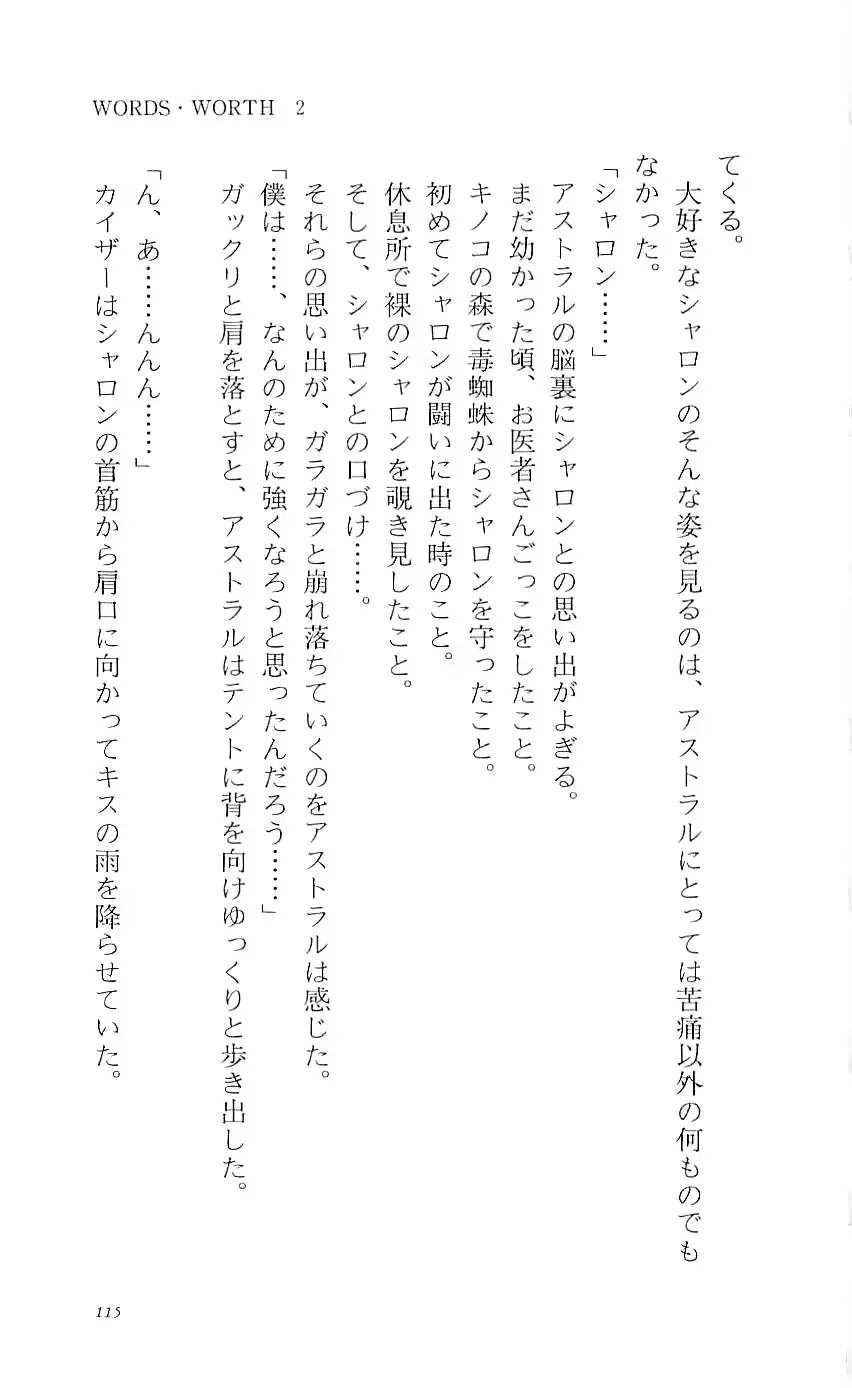 WORDS・WORTH 2
てくる。
大好きなシャロンのそんな姿を見るのは、アストラルにとっては苦痛以外の何ものでも
なかった。
「シャロン……」
アストラルの脳裏にシャロンとの思い出がよぎる。
まだ幼かった頃、お医者さんごっこをしたこと。
キノコの森で毒蜘蛛からシャロンを守ったこと。
初めてシャロンが闘いに出た時のこと。
休息所で裸のシャロンを覗き見したこと。
そして、シャロンとの口づけ……。
それらの思い出が、ガラガラと崩れ落ちていくのをアストラルは感じた。
「僕は……、なんのために強くなろうと思ったんだろう……」
ガックリと肩を落とすと、アストラルはテントに背を向けゆっくりと歩き出した。
「ん、あ……んんん……」
カイザーはシャロンの首筋から肩口に向かってキスの雨を降らせていた。
115